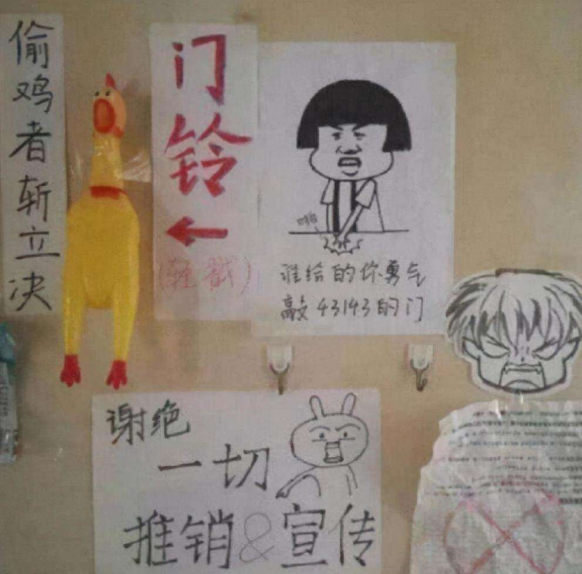 偷鸡者斩立决
门铃
(轻戳)
啪
谁给的你勇气
敲43143的门
谢绝
一切
推销&宣传